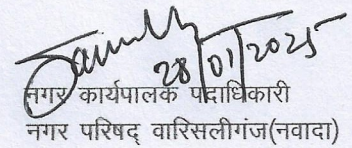 28/01/2025
नगर कार्यपालक पदाधिकारी
नगर परिषद् वारिसलीगंज(नवादा)